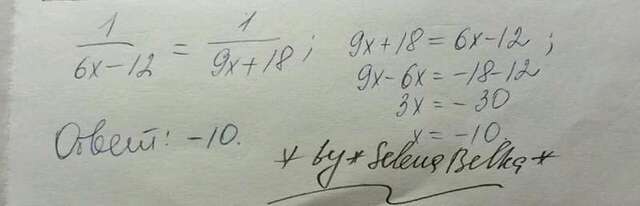 1/(6x-12) = 1/(9x+18); 9x+18 = 6x-12;
9x-6x = -18-12
3x = -30
x = -10.
Ответ: -10.
* by * Selena Belka *